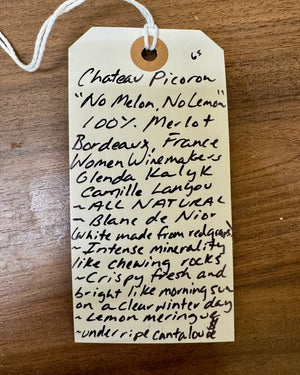 65
Chateau Picoron
"No Melon, No Lemon"
100% Merlot
Bordeaux, France
Women Winemakers
Glenda Kalyk
Camille Langou
~ALL NATURAL
- Blanc de Nior
(white made from red grapes)
~Intense minerality
like chewing rocks
~Crispy fresh and
bright like morning sun
on a clear winter day
~Lemon meringue
~underripe cantaloupe